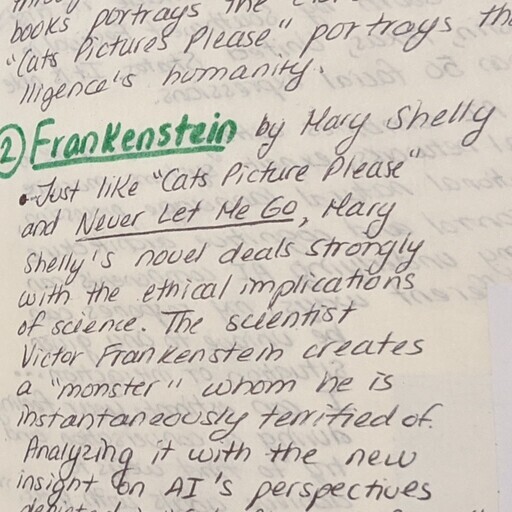 books portrays the
"Cats Pictures Please" portrays th
lligence's humanity.
2 Frankenstein by Mary Shelly
• Just like "Cats Picture Please"
and Never Let Me Go, Mary
Shelly's novel deals strongly
with the ethical implications
of science. The scientist
Victor Frankenstein creates
a "monster" whom he is
instantaneously terrified of.
Analyzing it with the new
insight on AI's perspectives